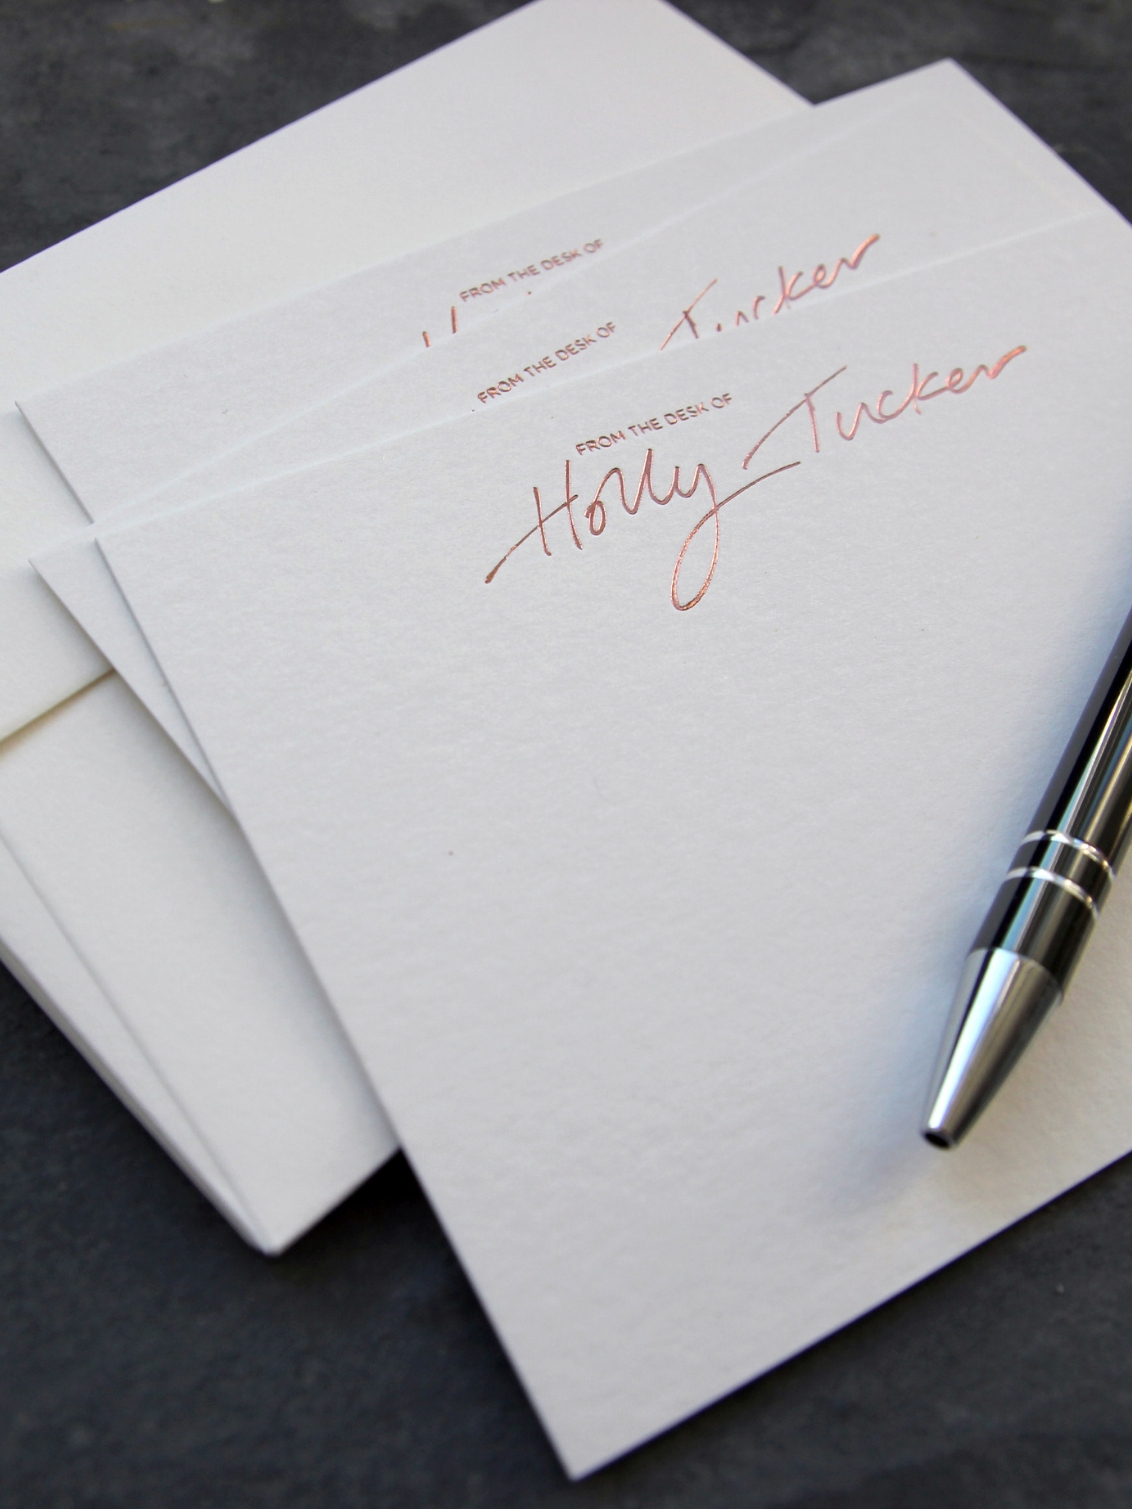 FROM THE DESK OF
Tucker
FROM THE DESK OF
FROM THE DESK OF
Holly Tucker